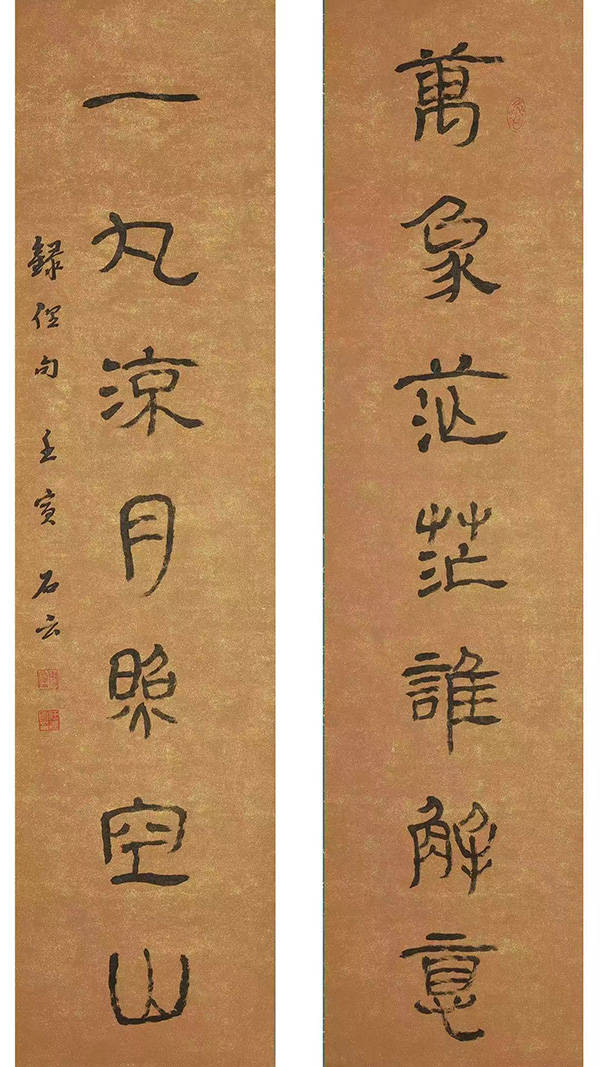 萬象茫茫誰解意
一丸涼月照空山
錄俚句 壬寅 石云